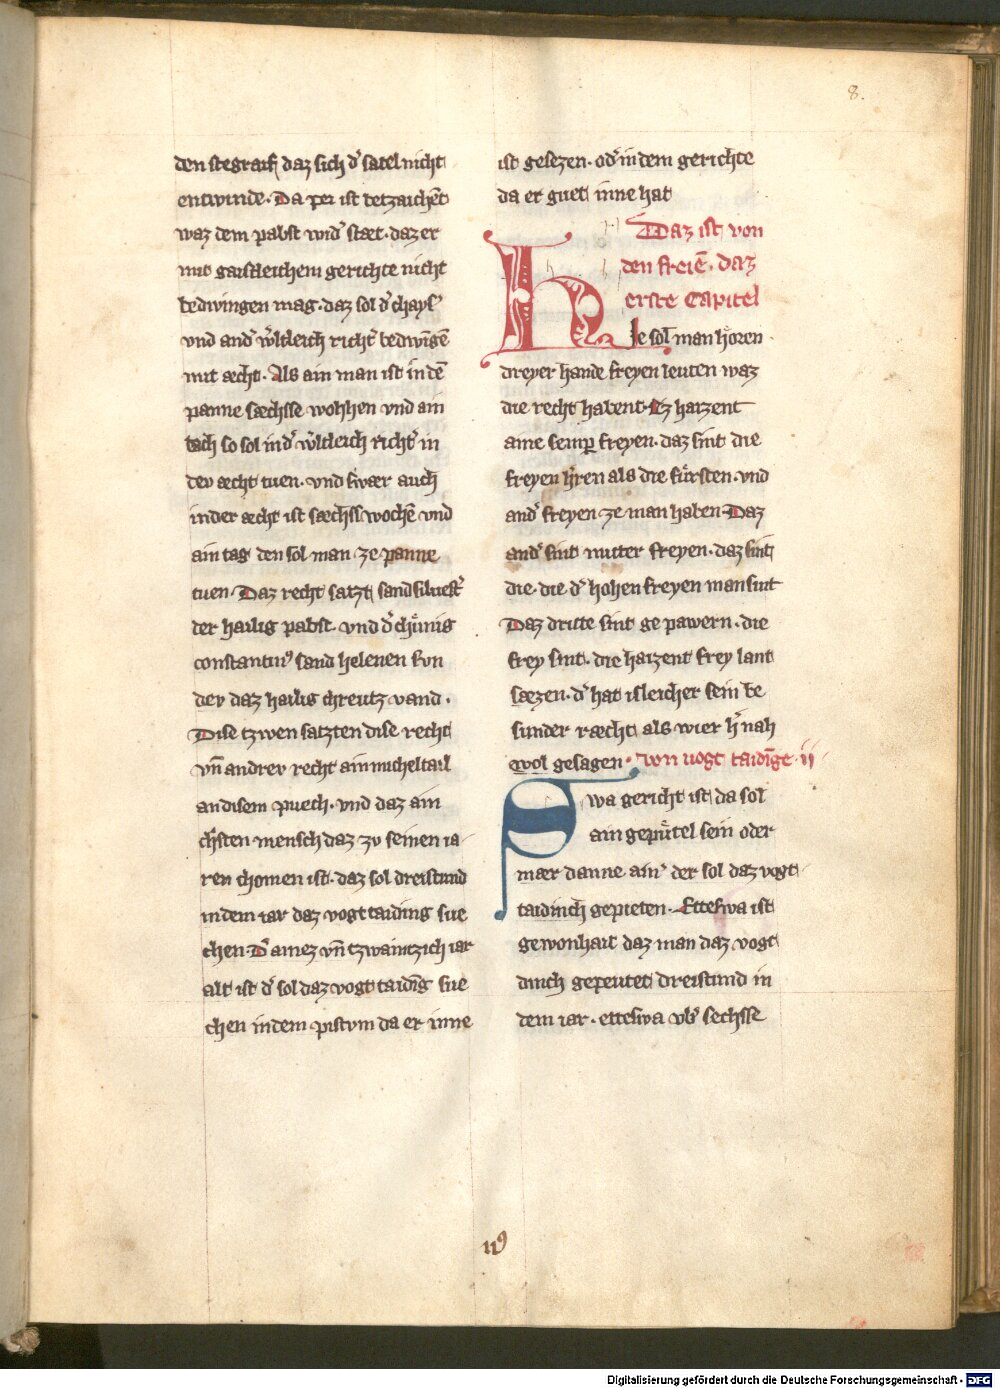 8.
den stegraif daz sich d' satel nicht
entwinde. Da pei ist betzaichēt
waz dem pabst wid' stæt. daz er
mit gaistleichem gerichte nicht
bedwingen mag. daz sol d' chays'
vnd and' w'ltleich richt' bedwīgē
mit æcht. Als ain man ist in dē
panne sæchsse wohhen vnd ain
tach so sol in d' w'ltleich richt' in
dev æcht tuen. vnd swær auch
in der æcht ist sæchss wochē vnd
ain tag den sol man ze panne
tuen. Daz recht satzt sand siluest'
der hailig pabst. vnd d' chůnig
constantin⁹ sand helenen sun
dev daz hailig chreutz vand.
Dise tzwen satzten dise recht
vn̄ andrev recht ain michel tail
an disem puech. vnd daz ain
ch'sten mensch daz zv seinen ia
ren chomen ist. daz sol dreistund
in dem iar daz vogt taiding sue
chen. D' ainez vn̄ tzwaintzich iar
alt ist d' sol daz vogt taidīg sue
chen in dem pistvm da er inne
ist gesezen. od' in dem gerichte
da er guet inne hat
Daz ist von
den freiē. daz
erste Capitel
Hie sol man hören
dreyer hande freyen leuten waz
die recht habent. Ez haizent
aine semp freyen. daz sint die
freyen h'ren als die fürsten. vnd
and' freyen ze man haben Daz
and' sint mitter freyen. daz sint
die. die d' hohen freyen man sint
Daz dritte sint ge pawern. die
frey sint. die haizent frey lant
sæzen. d' hat isleicher sein be
sunder ræcht als wier h' nah
wol gesagen. von uogt taidīge. ij
Swa gericht ist da sol
ain gepůtel sein oder
mær danne ain' der sol daz vogt
taidinch gepieten. Ettefwa ist
gewonhait daz man daz vogt
dinch gepeutet dreistund in
dem iar. etteswa vb' sechsse
ii⁹
Digitalisierung gefördert durch die Deutsche Forschungsgemeinschaft - DFG